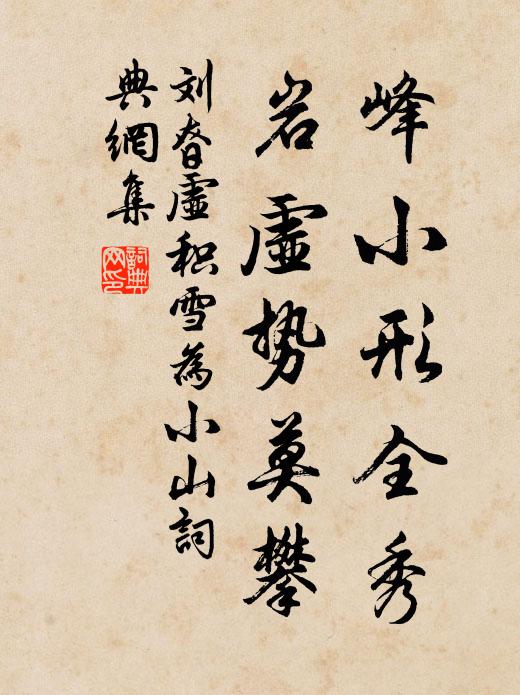 峰小形全秀
岩虚势莫攀
刘眘虚积雪為小山詞
典網集
詞典网印